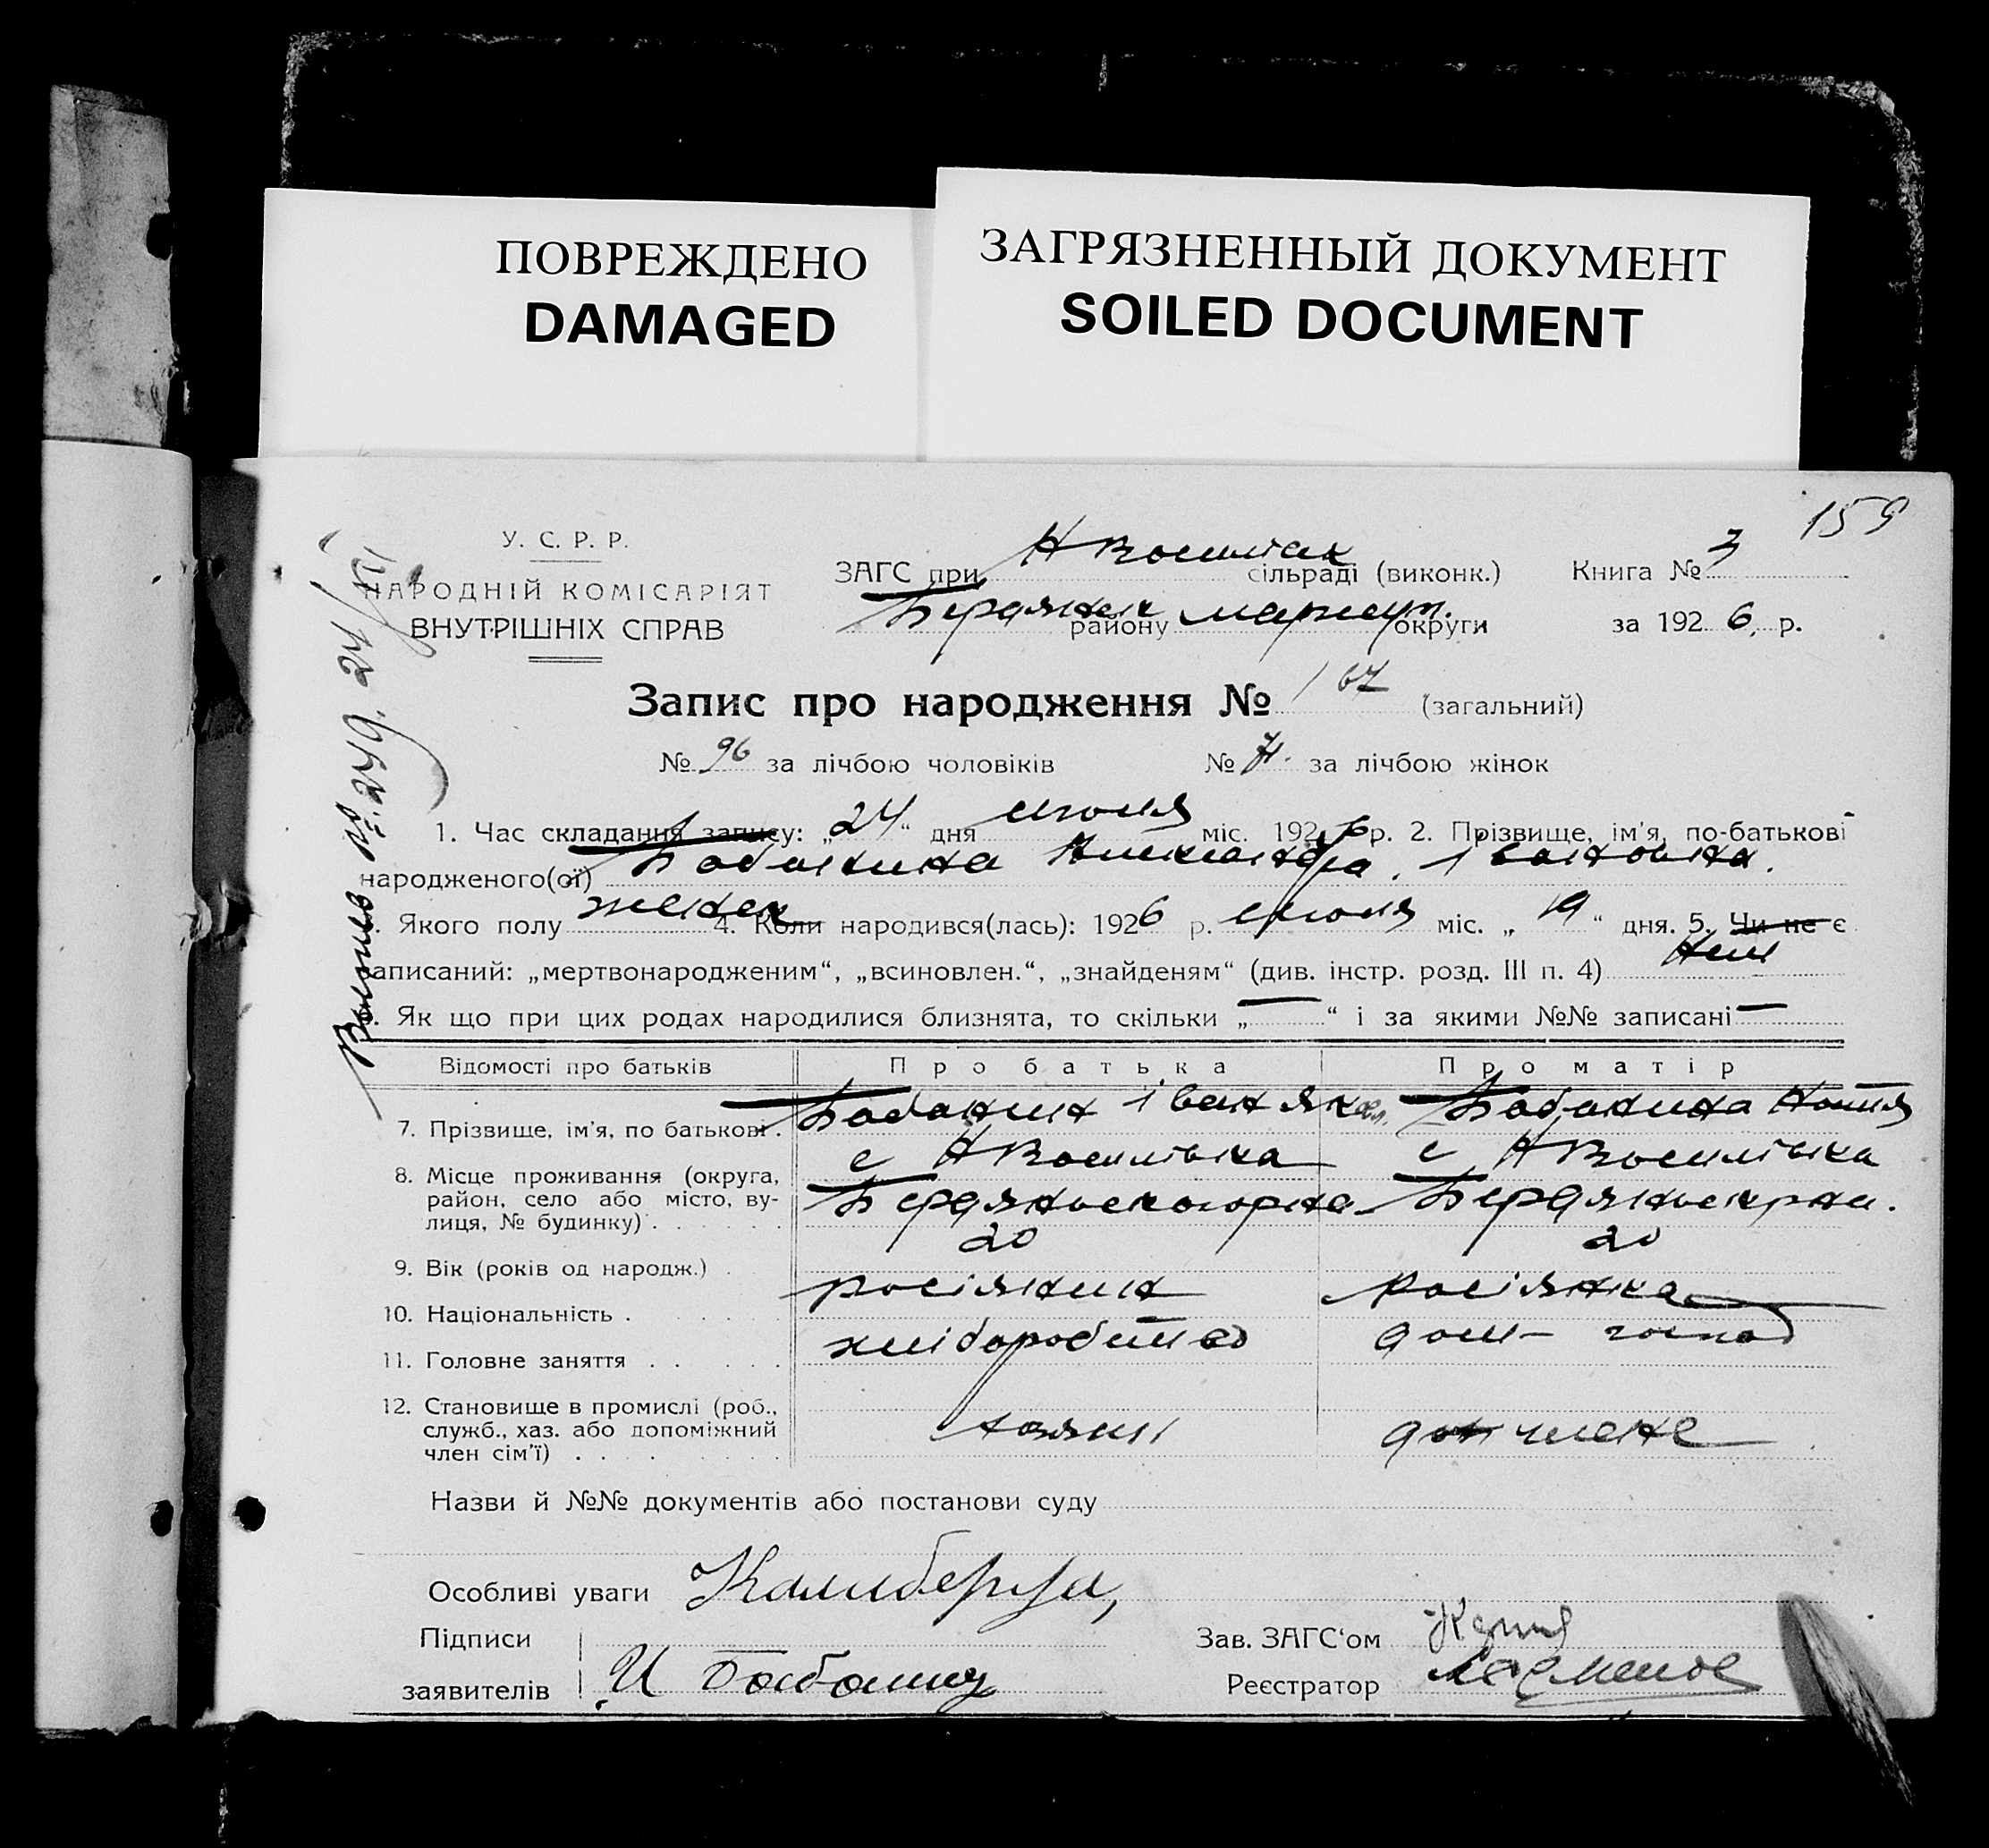 ПОВРЕЖДЕНО
DAMAGED
ЗАГРЯЗНЕННЫЙ ДОКУМЕНТ
SOILED DOCUMENT
159
У. С. Р. Р.
НАРОДНІЙ КОМІСАРІЯТ
ВНУТРІШНІХ СПРАВ
ЗАГС при сільраді (виконк.) Книга № 3
Бердянськ району мариуп. округи за 1926 р.
Запис про народження № 167 (загальний)
№ 96 за лічбою чоловіків № 71 за лічбою жінок
1. Час складання запису: „24“ дня июля міс. 1926 р. 2. Прізвище, ім'я, по-батькові
народженого(ої) Бабанина Александра Івановна.
. Якого полу женск 4. Коли народився(лась): 1926 р. июля міс. „19“ дня. 5. Чи не є
аписаний: „мертвонародженим“, „всиновлен.“, „знайденям“ (див. інстр. розд. III п. 4)
. Як що при цих родах народилися близнята, то скільки „—“ і за якими №№ записані —
Відомості про батьків Про батька Про матір
7. Прізвище, ім'я, по батькові . Бабанин Іван Бабанина
8. Місце проживання (округа, район, село або місто, ву-лиця, № будинку) . с НВасилівка с НВасилівка
Бердянського рна Бердянськ рна.
9. Вік (років од народж.) . 20 20
10. Національність . росіянин росіянка
11. Головне заняття . . хліборобство дом– господ
12. Становище в промислі (роб., служб., хаз. або допоміжний член сім'ї) . . . хазяин
Назви й №№ документів або постанови суду
Особливі уваги
Підписи заявителів И Бабанин
Зав. ЗАГС'ом
Реєстратор
№ 249. 24/VII